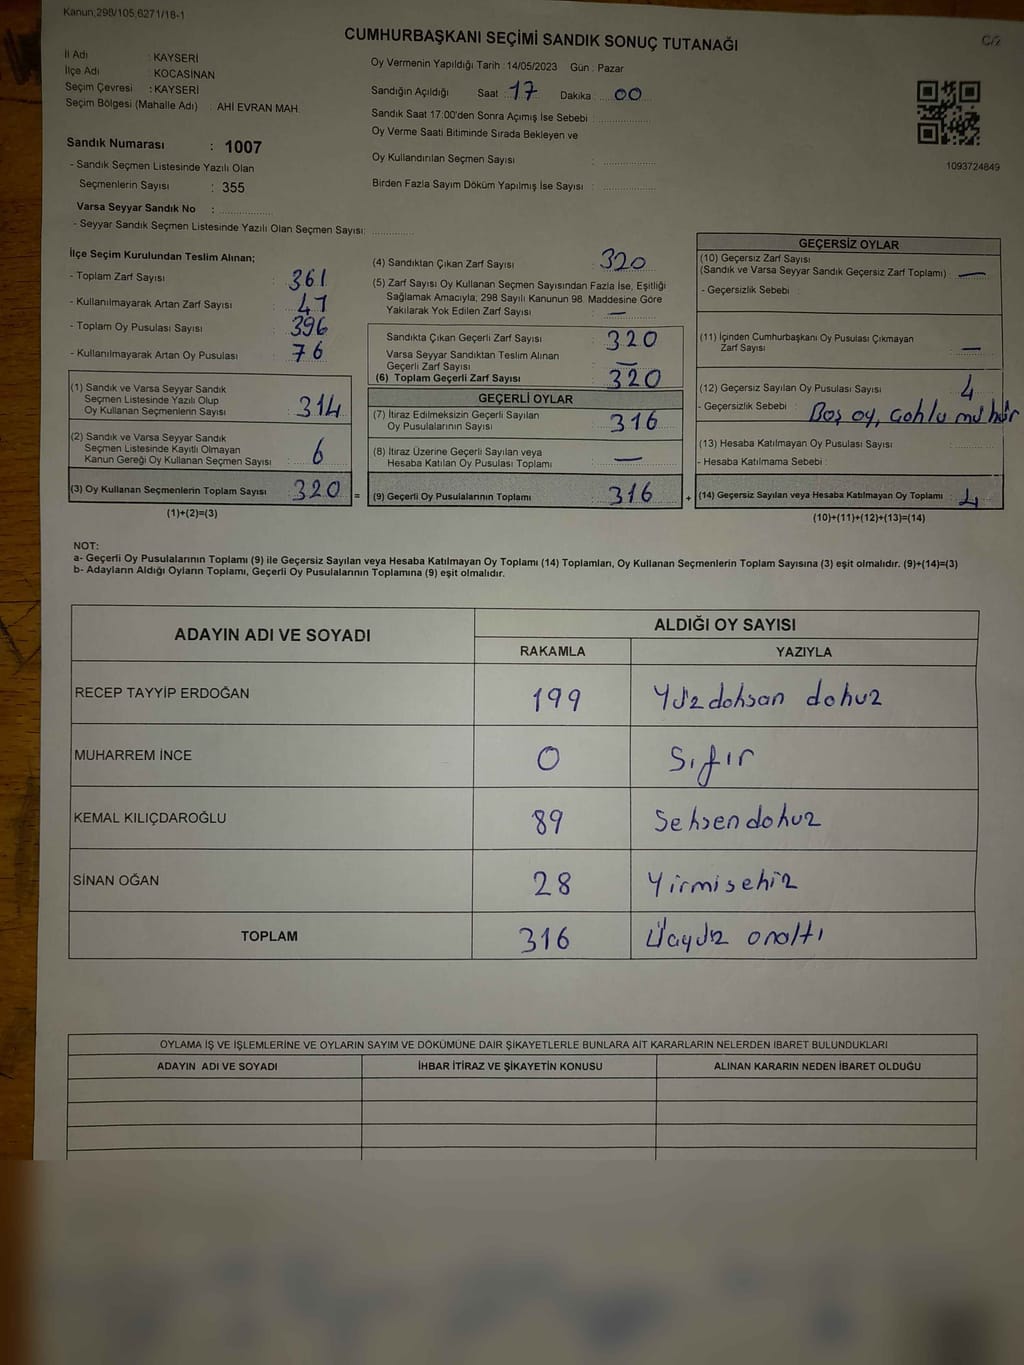 Kanun;298/105;6271/18-1
CUMHURBAŞKANI SEÇİMİ SANDIK SONUÇ TUTANAĞI
C/2
İl Adı : KAYSERİ
İlçe Adı : KOCASİNAN
Seçim Çevresi : KAYSERİ
Seçim Bölgesi (Mahalle Adı) : AHİ EVRAN MAH.
Oy Vermenin Yapıldığı Tarih : 14/05/2023 Gün : Pazar
Sandığın Açıldığı Saat 17 Dakika 00
Sandık Saat 17:00'den Sonra Açımış İse Sebebi :
Oy Verme Saati Bitiminde Sırada Bekleyen ve
Oy Kullandırılan Seçmen Sayısı :
Birden Fazla Sayım Döküm Yapılmış İse Sayısı :
1093724849
Sandık Numarası : 1007
- Sandık Seçmen Listesinde Yazılı Olan
Seçmenlerin Sayısı : 355
Varsa Seyyar Sandık No :
- Seyyar Sandık Seçmen Listesinde Yazılı Olan Seçmen Sayısı:
İlçe Seçim Kurulundan Teslim Alınan;
- Toplam Zarf Sayısı : 361
- Kullanılmayarak Artan Zarf Sayısı : 41
- Toplam Oy Pusulası Sayısı : 396
- Kullanılmayarak Artan Oy Pusulası : 76
(1) Sandık ve Varsa Seyyar Sandık
Seçmen Listesinde Yazılı Olup
Oy Kullanan Seçmenlerin Sayısı : 314
(2) Sandık ve Varsa Seyyar Sandık
Seçmen Listesinde Kayıtlı Olmayan
Kanun Gereği Oy Kullanan Seçmen Sayısı : 6
(3) Oy Kullanan Seçmenlerin Toplam Sayısı : 320 =
(1)+(2)=(3)
(4) Sandıktan Çıkan Zarf Sayısı : 320
(5) Zarf Sayısı Oy Kullanan Seçmen Sayısından Fazla İse, Eşitliği
Sağlamak Amacıyla, 298 Sayılı Kanunun 98. Maddesine Göre
Yakılarak Yok Edilen Zarf Sayısı : —
Sandıkta Çıkan Geçerli Zarf Sayısı : 320
Varsa Seyyar Sandıktan Teslim Alınan
Geçerli Zarf Sayısı : —
(6) Toplam Geçerli Zarf Sayısı : 320
GEÇERLİ OYLAR
(7) İtiraz Edilmeksizin Geçerli Sayılan
Oy Pusulalarının Sayısı : 316
(8) İtiraz Üzerine Geçerli Sayılan veya
Hesaba Katılan Oy Pusulası Toplamı : —
(9) Geçerli Oy Pusulalarının Toplamı : 316 +
GEÇERSİZ OYLAR
(10) Geçersiz Zarf Sayısı
(Sandık ve Varsa Seyyar Sandık Geçersiz Zarf Toplamı) : —
- Geçersizlik Sebebi :
(11) İçinden Cumhurbaşkanı Oy Pusulası Çıkmayan
Zarf Sayısı : —
(12) Geçersiz Sayılan Oy Pusulası Sayısı : 4
- Geçersizlik Sebebi : Boş oy, Çoklu mühür
(13) Hesaba Katılmayan Oy Pusulası Sayısı :
- Hesaba Katılmama Sebebi :
(14) Geçersiz Sayılan veya Hesaba Katılmayan Oy Toplamı : 4
(10)+(11)+(12)+(13)=(14)
NOT:
a- Geçerli Oy Pusulalarının Toplamı (9) ile Geçersiz Sayılan veya Hesaba Katılmayan Oy Toplamı (14) Toplamları, Oy Kullanan Seçmenlerin Toplam Sayısına (3) eşit olmalıdır. (9)+(14)=(3)
b- Adayların Aldığı Oyların Toplamı, Geçerli Oy Pusulalarının Toplamına (9) eşit olmalıdır.
ADAYIN ADI VE SOYADI ALDIĞI OY SAYISI
RAKAMLA YAZIYLA
RECEP TAYYİP ERDOĞAN 199 Yüzdoksan dokuz
MUHARREM İNCE 0 Sıfır
KEMAL KILIÇDAROĞLU 89 Seksendokuz
SİNAN OĞAN 28 Yirmisekiz
TOPLAM 316 Üçyüz onaltı
OYLAMA İŞ VE İŞLEMLERİNE VE OYLARIN SAYIM VE DÖKÜMÜNE DAİR ŞİKAYETLERLE BUNLARA AİT KARARLARIN NELERDEN İBARET BULUNDUKLARI
ADAYIN ADI VE SOYADI İHBAR İTİRAZ VE ŞİKAYETİN KONUSU ALINAN KARARIN NEDEN İBARET OLDUĞU